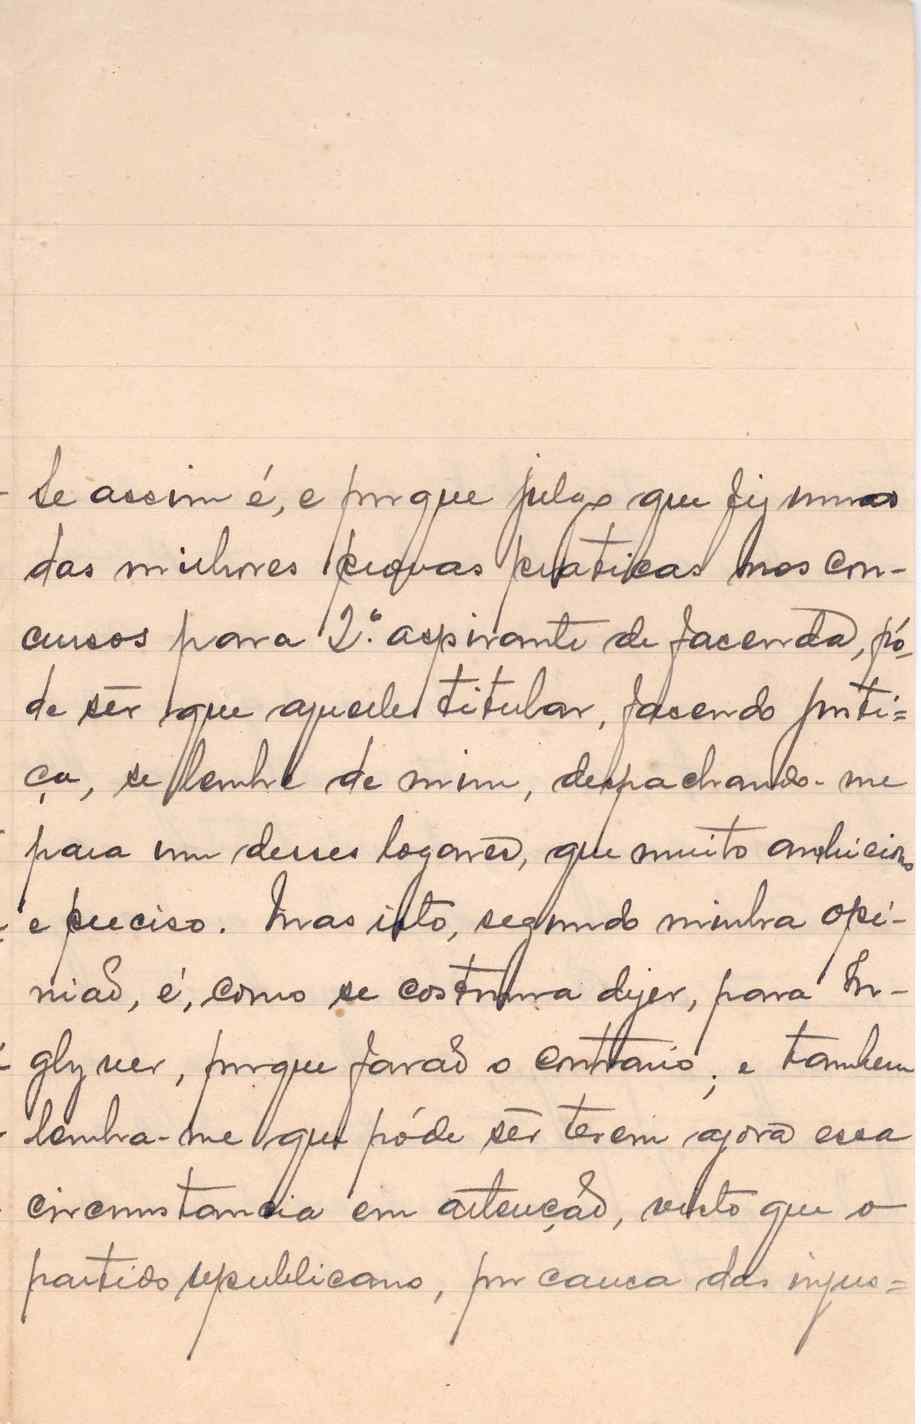 Se assim é, e porque julgo que fiz umas
das milhores provas praticas nos con-
cursos para 2.º aspirante de fasenda, pó-
de sêr que aquele titular, fasendo justi=
ça, se lembre de mim, despachando-me
para um desses logares, que muito ambiciono
e preciso. Mas isto, segundo minha opi-
nião, é, como se costuma dizer, para In-
glez ver, porque farão o contrario; e tambem
lembra-me que póde sêr terem agora essa
circumstancia em attenção, visto que o
partido republicano, por causa das injus=